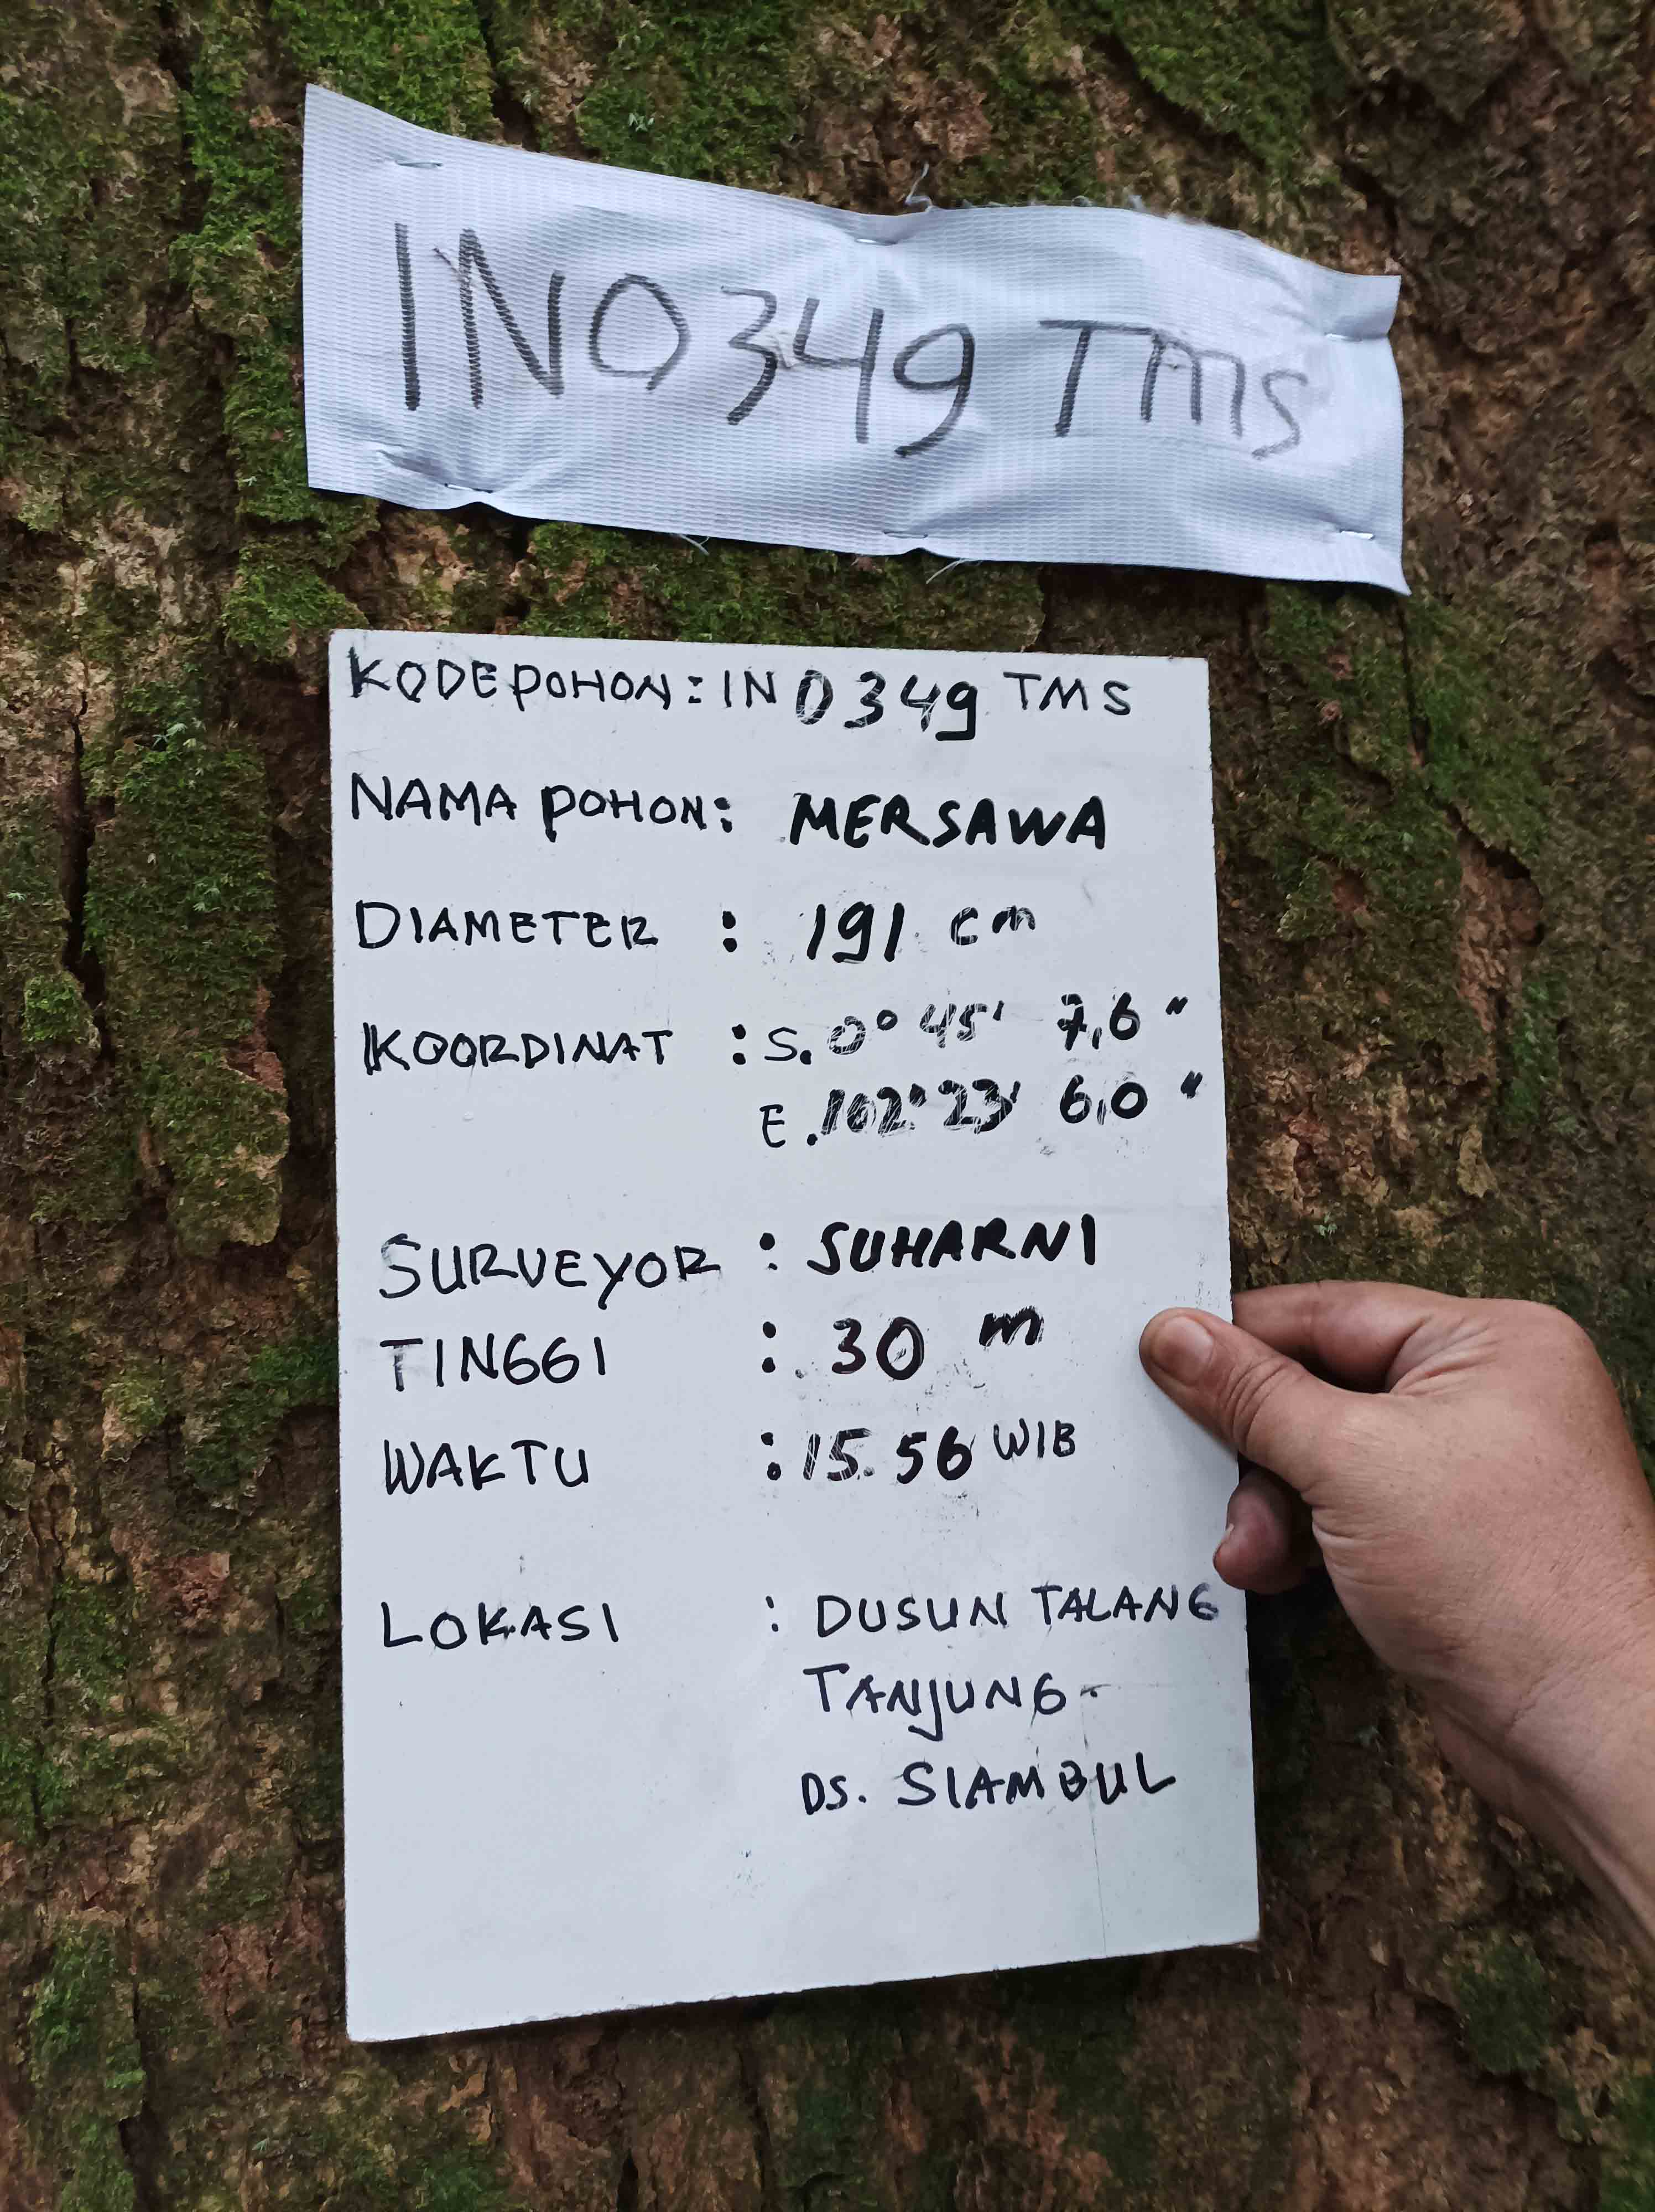 INO349 TMS
KODE POHON : INO349 TMS
NAMA POHON : MERSAWA
DIAMETER : 191 cm
KOORDINAT : S. 0° 45' 7,6 "
E. 102° 23' 6,0 "
SURVEYOR : SUHARNI
TINGGI : 30 m
WAKTU : 15.56 WIB
LOKASI : DUSUN TALANG
TANJUNG
DS. SIAMBUL